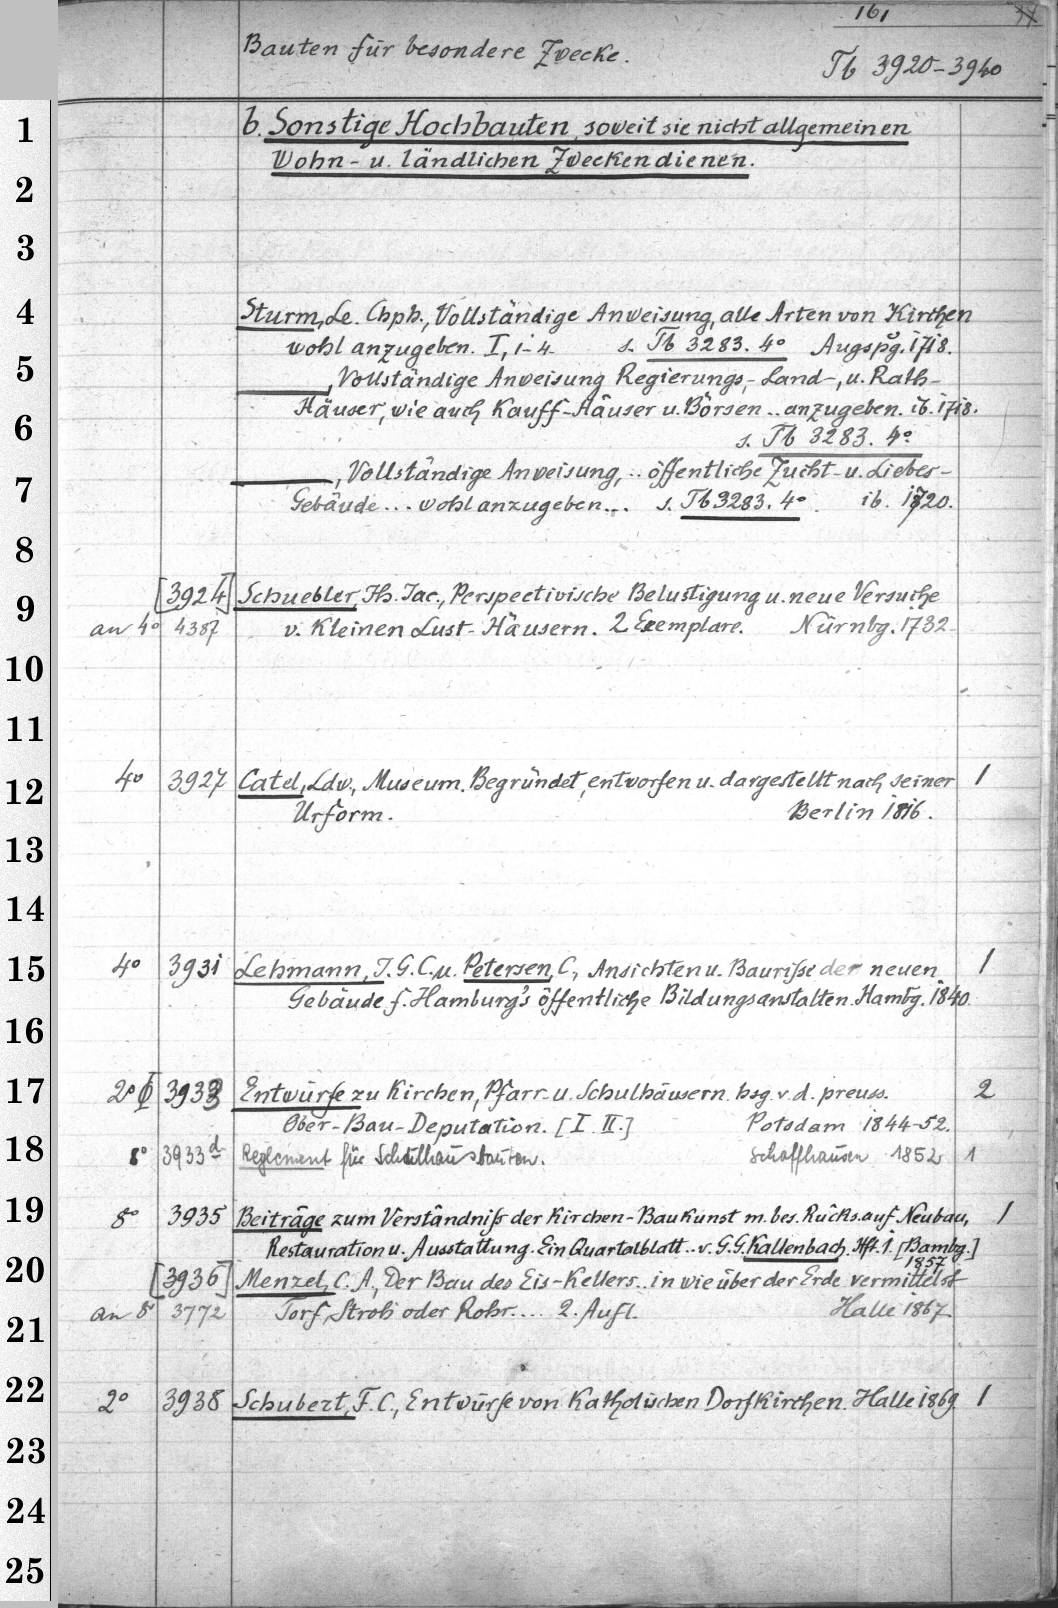 161
Bauten für besondere Zwecke.
Tb 3920-3940
1 b. Sonstige Hochbauten, soweit sie nicht allgemeinen
2 Wohn- u. ländlichen Zwecken dienen.
3
4 Sturm, Le. Chph., Vollständige Anweisung, alle Arten von Kirchen
wohl anzugeben. I, 1-4. s. Tb 3283. 4° Augspg. 1718.
5 ———, Vollständige Anweisung Regierungs-, Land-, u. Rath-
6 Häuser, wie auch Kauff-Häuser u. Börsen .. anzugeben. ib. 1718.
s. Tb 3283. 4°
7 ———, Vollständige Anweisung, .. öffentliche Zucht- u. Liebes-
Gebäude ... wohl anzugeben... s. Tb 3283. 4°. ib. 1720.
8
9 [3924] Schuebler, Jh. Jac., Perspectivische Belustigung u. neue Versuche
an 4° 4387 v. Kleinen Lust-Häusern. 2 Exemplare. Nürnbg. 1732
10
11
12 4° 3927 Catel, Ldw., Museum. Begründet, entworfen u. dargestellt nach seiner 1
Urform. Berlin 1816.
13
14
15 4° 3931 Lehmann, J. G. C. u. Petersen, C., Ansichten u. Baurisse der neuen 1
Gebäude f. Hamburg's öffentliche Bildungsanstalten. Hambg. 1840
16
17 2° 3933 Entwürfe zu Kirchen, Pfarr- u. Schulhäusern hsg. v. d. preuss. 2
Ober-Bau-Deputation. [I. II.] Potsdam 1844-52.
18 8° 3933d Reglement für Schulhausbauten. Schaffhausen 1852 1
19 8° 3935 Beiträge zum Verständniß der Kirchen-Baukunst m. bes. Rücks. auf Neubau, 1
Restauration u. Ausstattung. Ein Quartalblatt .. v. G. G. Kallenbach. Hft. 1. [Bambg.]
1857
20 [3936] Menzel, C. A., Der Bau des Eis-Kellers .. in wie über der Erde vermittelst
21 an 8° 3772 Torf, Stroh oder Rohr.... 2. Aufl. Halle 1867.
22 2° 3938 Schubert, F. C., Entwürfe von Katholischen Dorfkirchen. Halle 1869 1
23
24
25